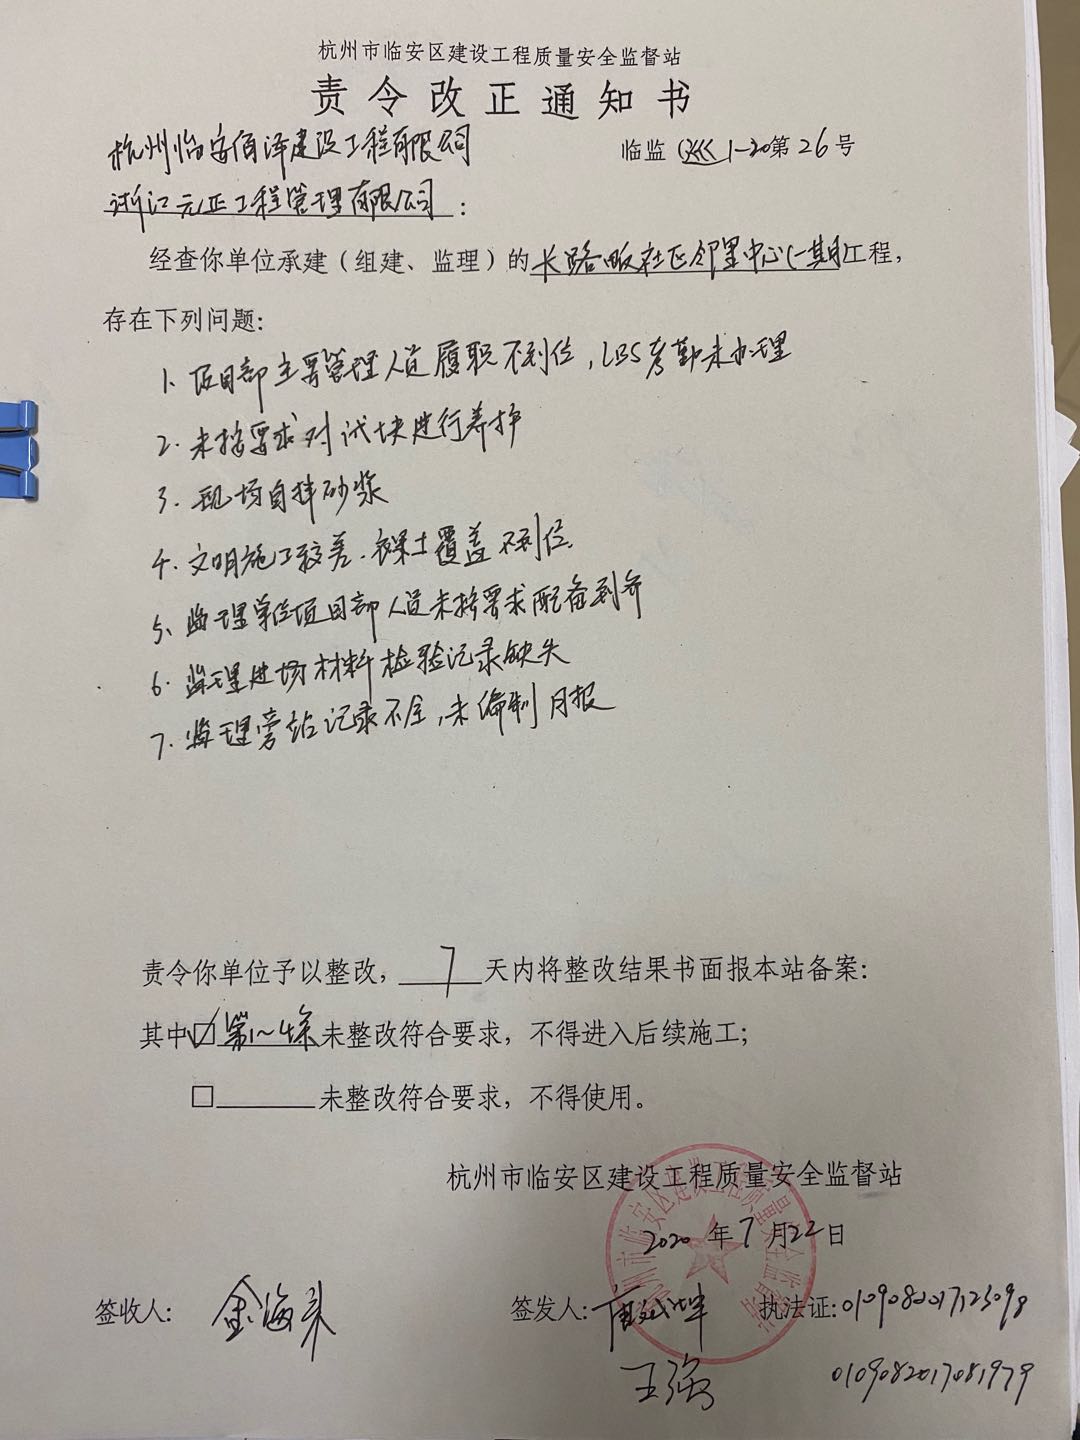 杭州市临安区建设工程质量安全监督站
责令改正通知书
杭州临安佰泽建设工程有限公司
临监 1-20第26号
浙江元正工程管理有限公司:
经查你单位承建(组建、监理)的长路畈社区邻里中心(一期)工程,
存在下列问题:
1、项目部主要管理人员履职不到位,LBS考勤未办理
2.未按要求对试块进行养护
3.现场自拌砂浆
4.文明施工较差.裸土覆盖不到位.
5、监理单位项目部人员未按要求配备到齐
6.监理进场材料检验记录缺失
7.监理旁站记录不全,未编制月报
责令你单位予以整改, 7 天内将整改结果书面报本站备案:
其中☑第1~4条未整改符合要求,不得进入后续施工;
□______未整改符合要求,不得使用。
杭州市临安区建设工程质量安全监督站
2020年7月22日
签收人: 金海
签发人: 执法证:0109082017123098
王强 0109082017081979